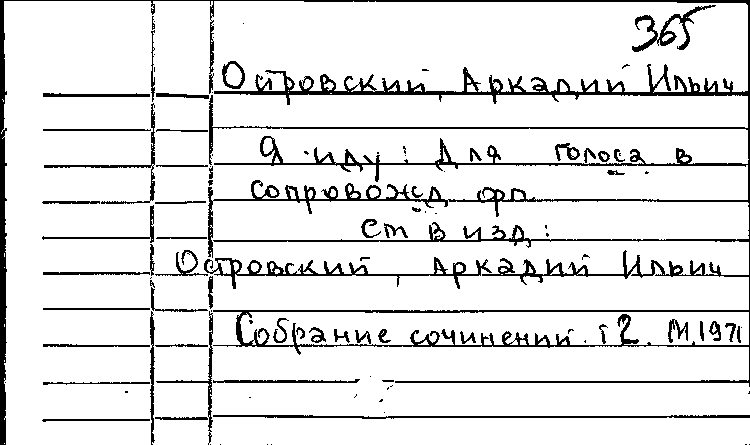 365
Островский, Аркадий Ильич
Я иду: Для голоса в
сопровожд фп.
См в изд:
Островский, Аркадий Ильич
Собрание сочинений. т 2. М, 1971